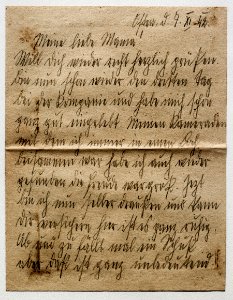 Osten, d. 9. XI. 42.
Meine liebe Mama!
Will dich wieder recht herzlich grüßen.
Bin nun schon wieder den dritten Tag
bei der Kompanie und habe mich schon
ganz gut eingelebt. Meinen Kameraden
mit dem ich immer in einem
beisammen war habe ich auch wieder
gefunden die Freud war groß. Jetzt
bin ich nun selber draußen und kann
dir versichern hier ist es ganz ruhig
Ab und zu fällt mal ein Schuß
aber daß ist ganz unbedeutend